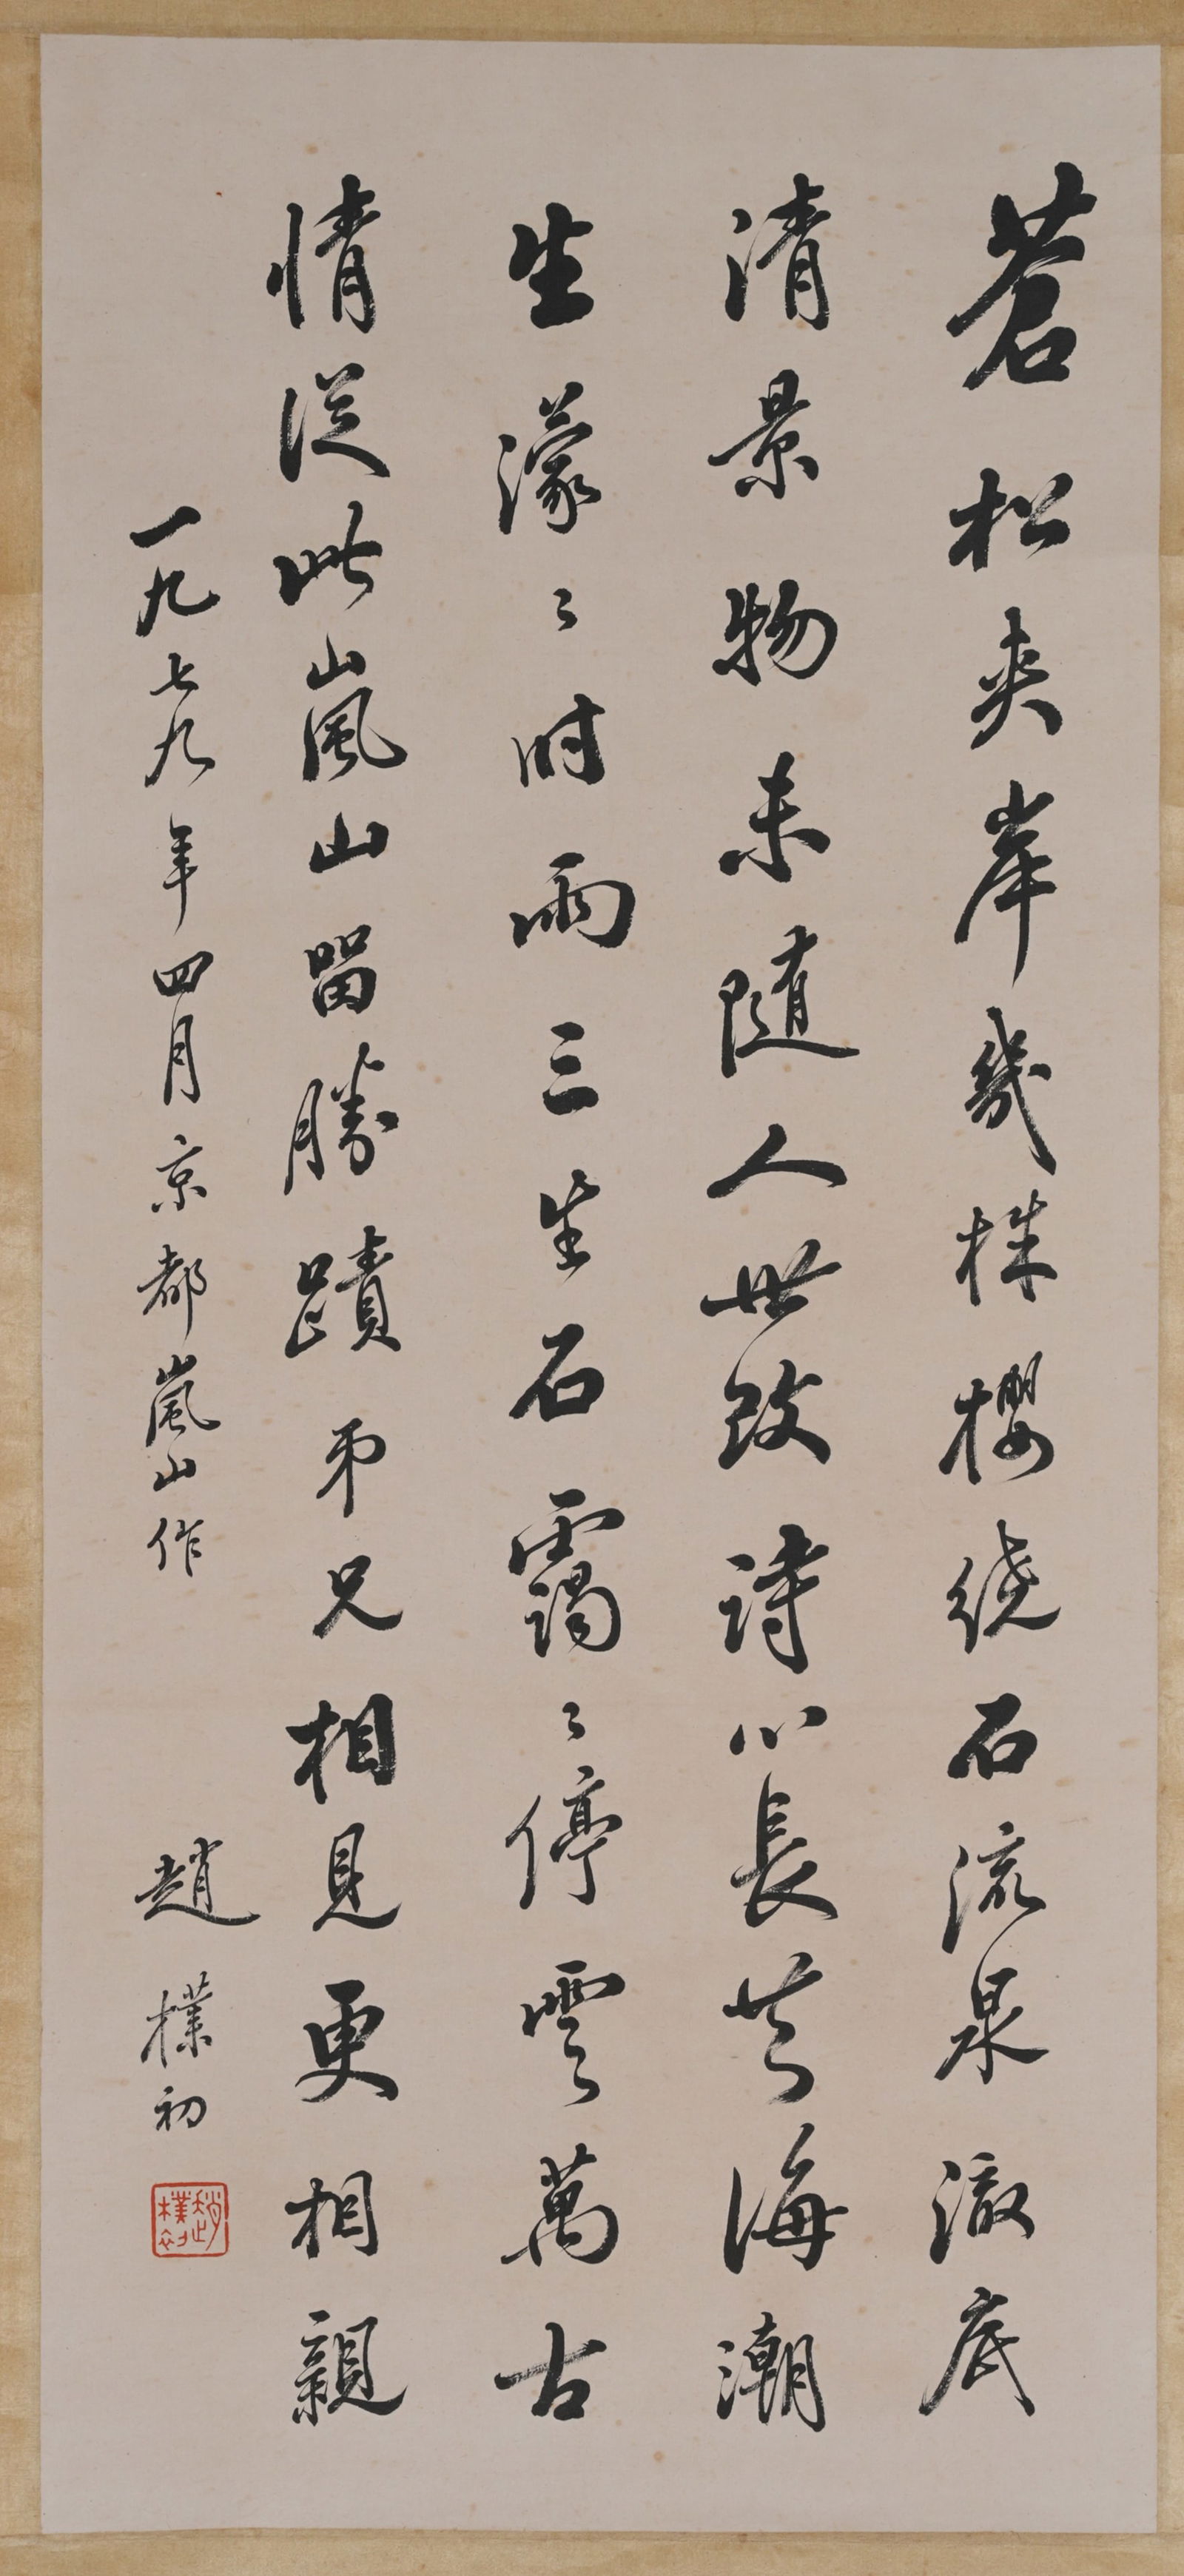 苍松夾岸幾株櫻绕石流泉澈底
清景物未随人世改詩心長共海潮
生濛〻时雨三生石靄〻停雲萬古
情從此嵐山留勝蹟弟兄相見更相親
一九七九年四月京都嵐山作
趙樸初
趙樸初